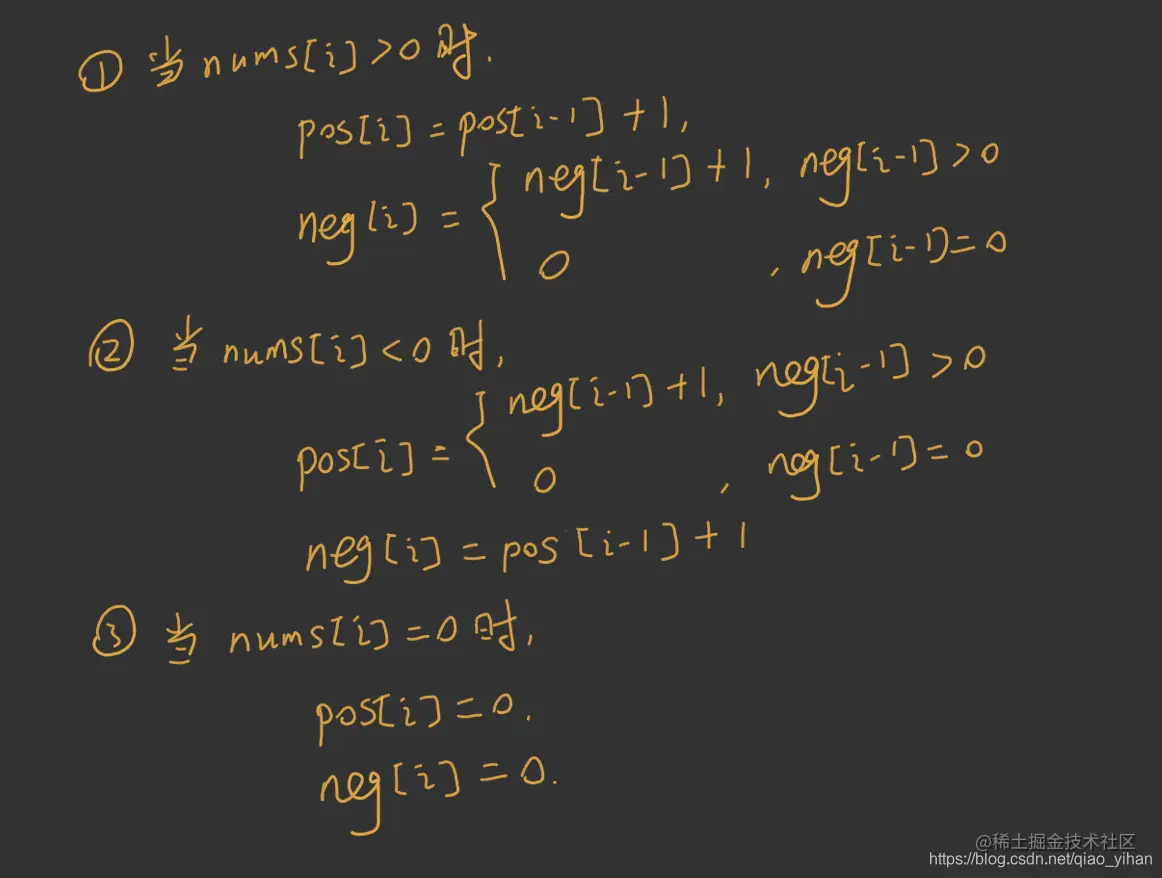 ① 当 nums[i]>0 时.
pos[i] = pos[i-1]+1,
neg[i] = { neg[i-1]+1, neg[i-1]>0
0 , neg[i-1]=0
② 当 nums[i]<0 时,
pos[i] = { neg[i-1]+1, neg[i-1]>0
0 , neg[i-1]=0
neg[i] = pos[i-1]+1
③ 当 nums[i]=0 时,
pos[i]=0.
neg[i]=0.
@稀土掘金技术社区
https://blog.csdn.net/qiao_yihan